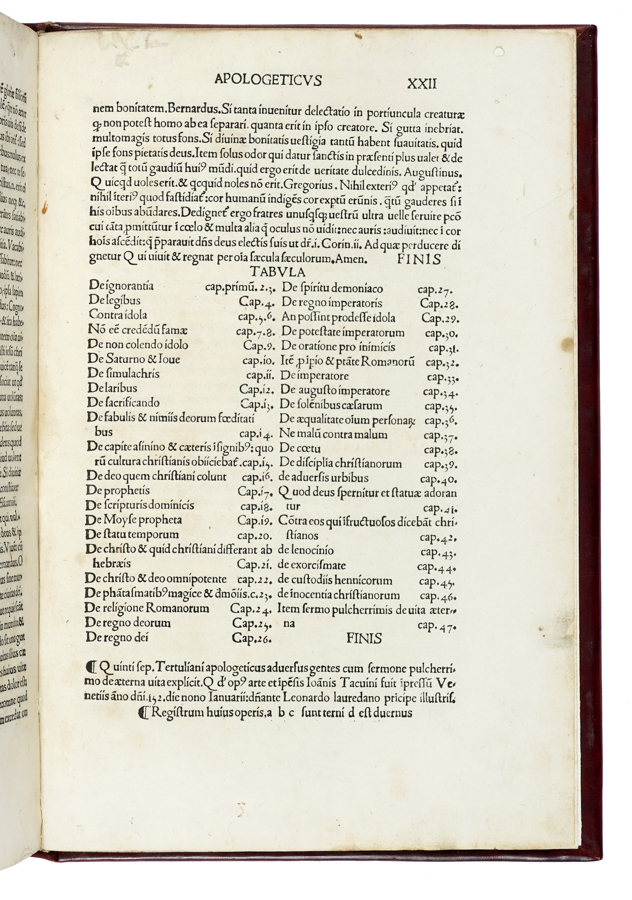 APOLOGETICVS XXII
nem bonitatem. Bernardus. Si tanta inuenitur delectatio in portiuncula creaturæ
ꝙ non potest homo ab ea separari. quanta erit in ipso creatore. Si gutta inebriat.
multomagis totus fons. Si diuinæ bonitatis uestigia tantũ habent suauitatis. quid
ipse fons pietatis deus. Item solus odor qui datur sanctis in præsenti plus ualet & de
lectat q̃ totũ gaudiũ huiꝰ mũdi. quid ergo erit de ueritate dulcedinis. Augustinus.
Quicqd uoles erit. & qcquid noles nõ erit. Gregorius. Nihil exteriꝰ qd' appetat:
nihil ĩteriꝰ quod fastidiat: cor humanũ indigẽs cor exptũ erũnis. q̃tũ gauderes si ĩ
his oibus abũdares. Dedignet ergo fratres unusqsq; uestrũ ultra uelle seruire pcõ
cui tãta pmittũtur ĩ cœlo & multa alia q̃ oculus nõ uidit: nec auris: audiuit: nec ĩ cor
hois ascẽdit: q̃ pparauit dñs deus electis suis ut dr̃. i. Corin. ii. Ad quæ perducere di
gnetur Qui uiuit & regnat per oĩa sæcula sæculorum. Amen. FINIS
TABVLA
De ignorantia cap. primũ. 2. 3.
De legibus Cap. 4.
Contra idola cap. 5. 6.
Nõ eẽ credẽdũ famæ cap. 7. 8.
De non colendo idolo Cap. 9.
De Saturno & Ioue cap. 10.
De simulachris cap. ii.
De laribus Cap. i2.
De sacrificando Cap. i3.
De fabulis & nimiis deorum fœditati
bus cap. i4.
De capite asinino & cæteris ĩsignibꝰ: quo
rũ cultura christianis obiiciebat̃. cap. i5.
De deo quem christiani colunt cap. i6.
De prophetis Cap. i7.
De scripturis dominicis cap. i8.
De Moyse propheta Cap. i9.
De statu temporum cap. 20.
De christo & quid christiani differant ab
hebræis Cap. 2i.
De christo & deo omnipotente cap. 22.
De phãtasmatibꝰ magice & dmõiis. c. 23.
De religione Romanorum Cap. 24.
De regno deorum Cap. 25.
De regno dei Cap. 26.
De spiritu demoniaco cap. 27.
De regno imperatoris Cap. 28.
An possint prodesse idola Cap. 29.
De potestate imperatorum cap. 30.
De oratione pro inimicis cap. 3i.
Itẽ pĩpio & ptãte Romanorũ cap. 32.
De imperatore cap. 33.
De augusto imperatore cap. 34.
De solẽnibus cæsarum cap. 35.
De æqualitate oium personaꝝ cap. 36.
Ne malũ contra malum cap. 37.
De cœtu cap. 38.
De disciplia christianorum cap. 39.
de aduersis urbibus cap. 40.
Quod deus spernitur et statuæ adoran
tur cap. 4i.
Cõtra eos qui ĩfructuosos dicebãt chri-
stianos cap. 42.
de lenocinio cap. 43.
de exorcismate cap. 44.
de custodiis hennicorum cap. 45.
de inocentia christianorum cap. 46.
Item sermo pulcherrimis de uita æter-
na cap. 47.
FINIS
¶ Quinti sep. Tertuliani apologeticus aduersus gentes cum sermone pulcherri-
mo de æterna uita explicit. Qd' opꝰ arte et ĩpẽsis Ioãnis Tacuini fuit ĩpressũ Ve-
netiis ãno dñi. i52. die nono Ianuarii: dñante Leonardo lauredano prĩcipe illustris.
¶ Registrum huius operis. a b c sunt terni d est duernus